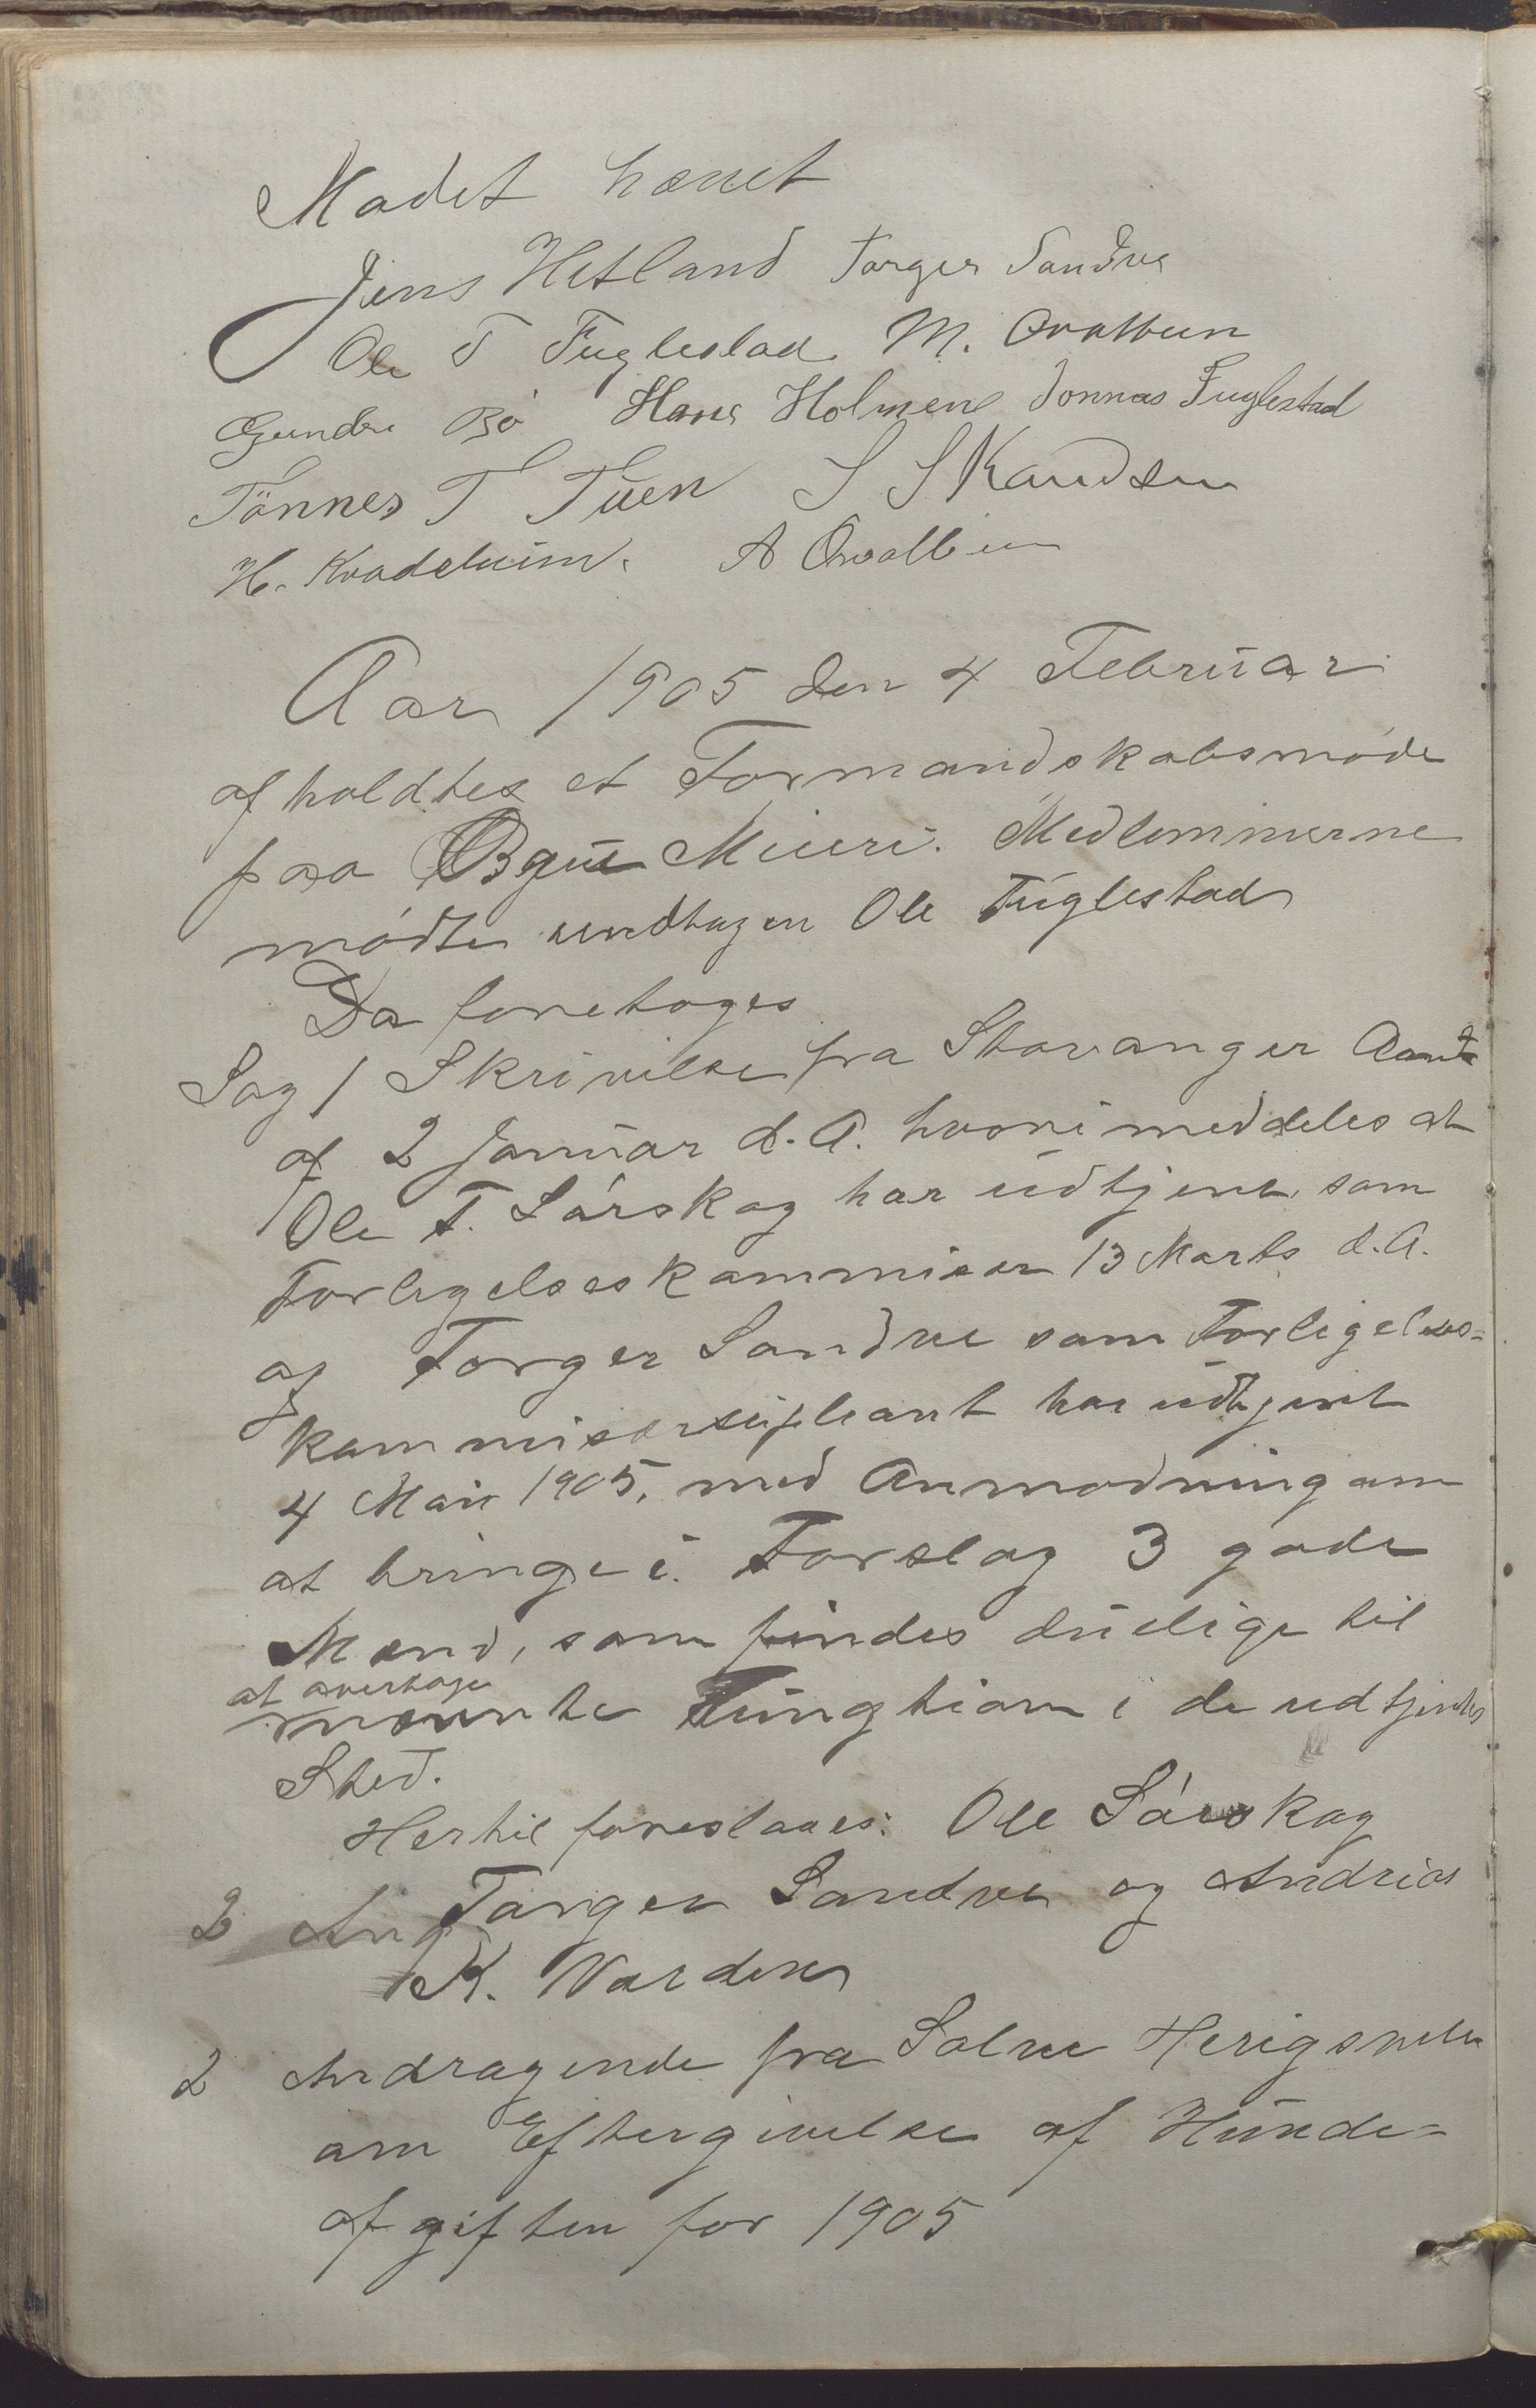 Mødet hævet
Jens Hetland Torger Sandve
Ole T Fuglestad. M. Qvalbein
Gundr Bø Hans Holmene Jonnas Fuglestad
Tönnes T Tuen S S Knudsen
H. Kvadsheim. A Qvalbein
Aar 1905 den 4 Februar
afholdtes et Formandskabsmøde
paa Bgue Mieeri. Medlemmerne
mødte undtagen Ole Fuglestad
Da foretoges
Sag 1 Skrivelse fra Stavanger Aamt
af 2 Januar d. A. hvori meddeles at
Ole T. Sørskog har udtjent som
Forligelseskommisær 13 Marts d. A.
og Torger Sandve som Forligelses=
kommisærsupleant har udtjent
4 Mai 1905, med Anmodning om
at bringe i Forslag 3 gode
Mænd, som findes duelige til
at overtage
Fungtion i de udtjentes
Sted.
Hertil foreslaaes: Ole Sørskog
2 And Torger Sandve og Andrias
K. Varden
2 Andragende fra Salve
om Eftergivelse af Hunde=
afgiften for 1905